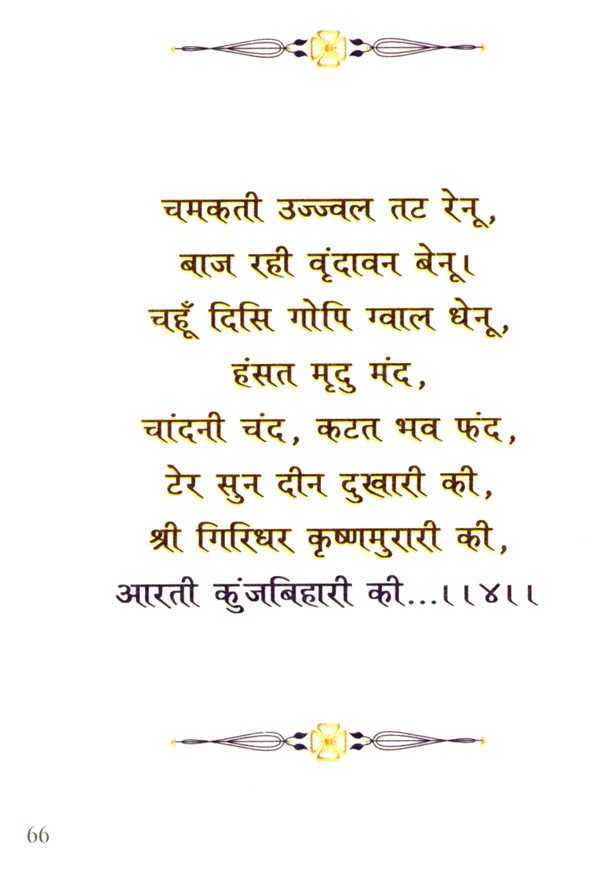 चमकती उज्ज्वल तट रेनू,
बाज रही वृंदावन बेनू।
चहूँ दिसि गोपि ग्वाल धेनू,
हंसत मृदु मंद,
चांदनी चंद, कटत भव फंद,
टेर सुन दीन दुखारी की,
श्री गिरिधर कृष्णमुरारी की,
आरती कुंजबिहारी की...।।४।।
66